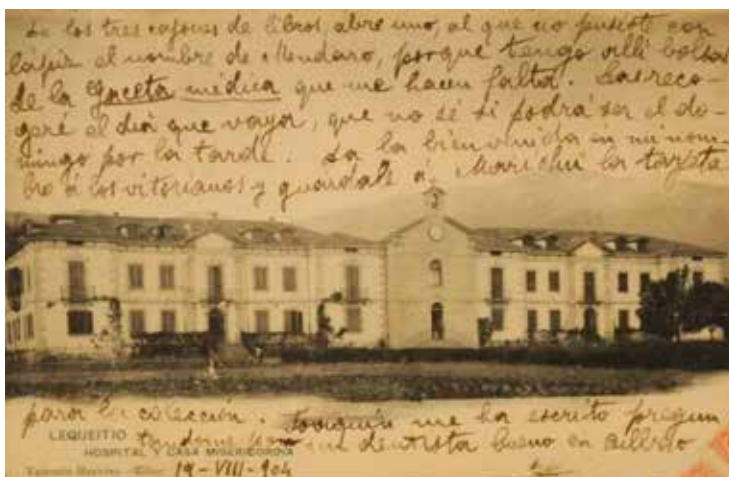 De los tres cajones de libros, abre uno, al que no pusiste con
lápiz el nombre de Mendaro, porque tengo allí bolsas
de la Gaceta médica que me hacen falta. Las reco-
geré el día que vaya, que no sé si podrá ser el do-
mingo por la tarde. Da la bienvenida en mi nom-
bre á los vitorianos y guárdale á Marichu la tarjeta
para la colección. Joaquín me ha escrito pregun
tandome por un dentista bueno en Bilbao
LEQUEITIO
HOSPITAL Y CASA MISERICORDIA
19-VIII-904